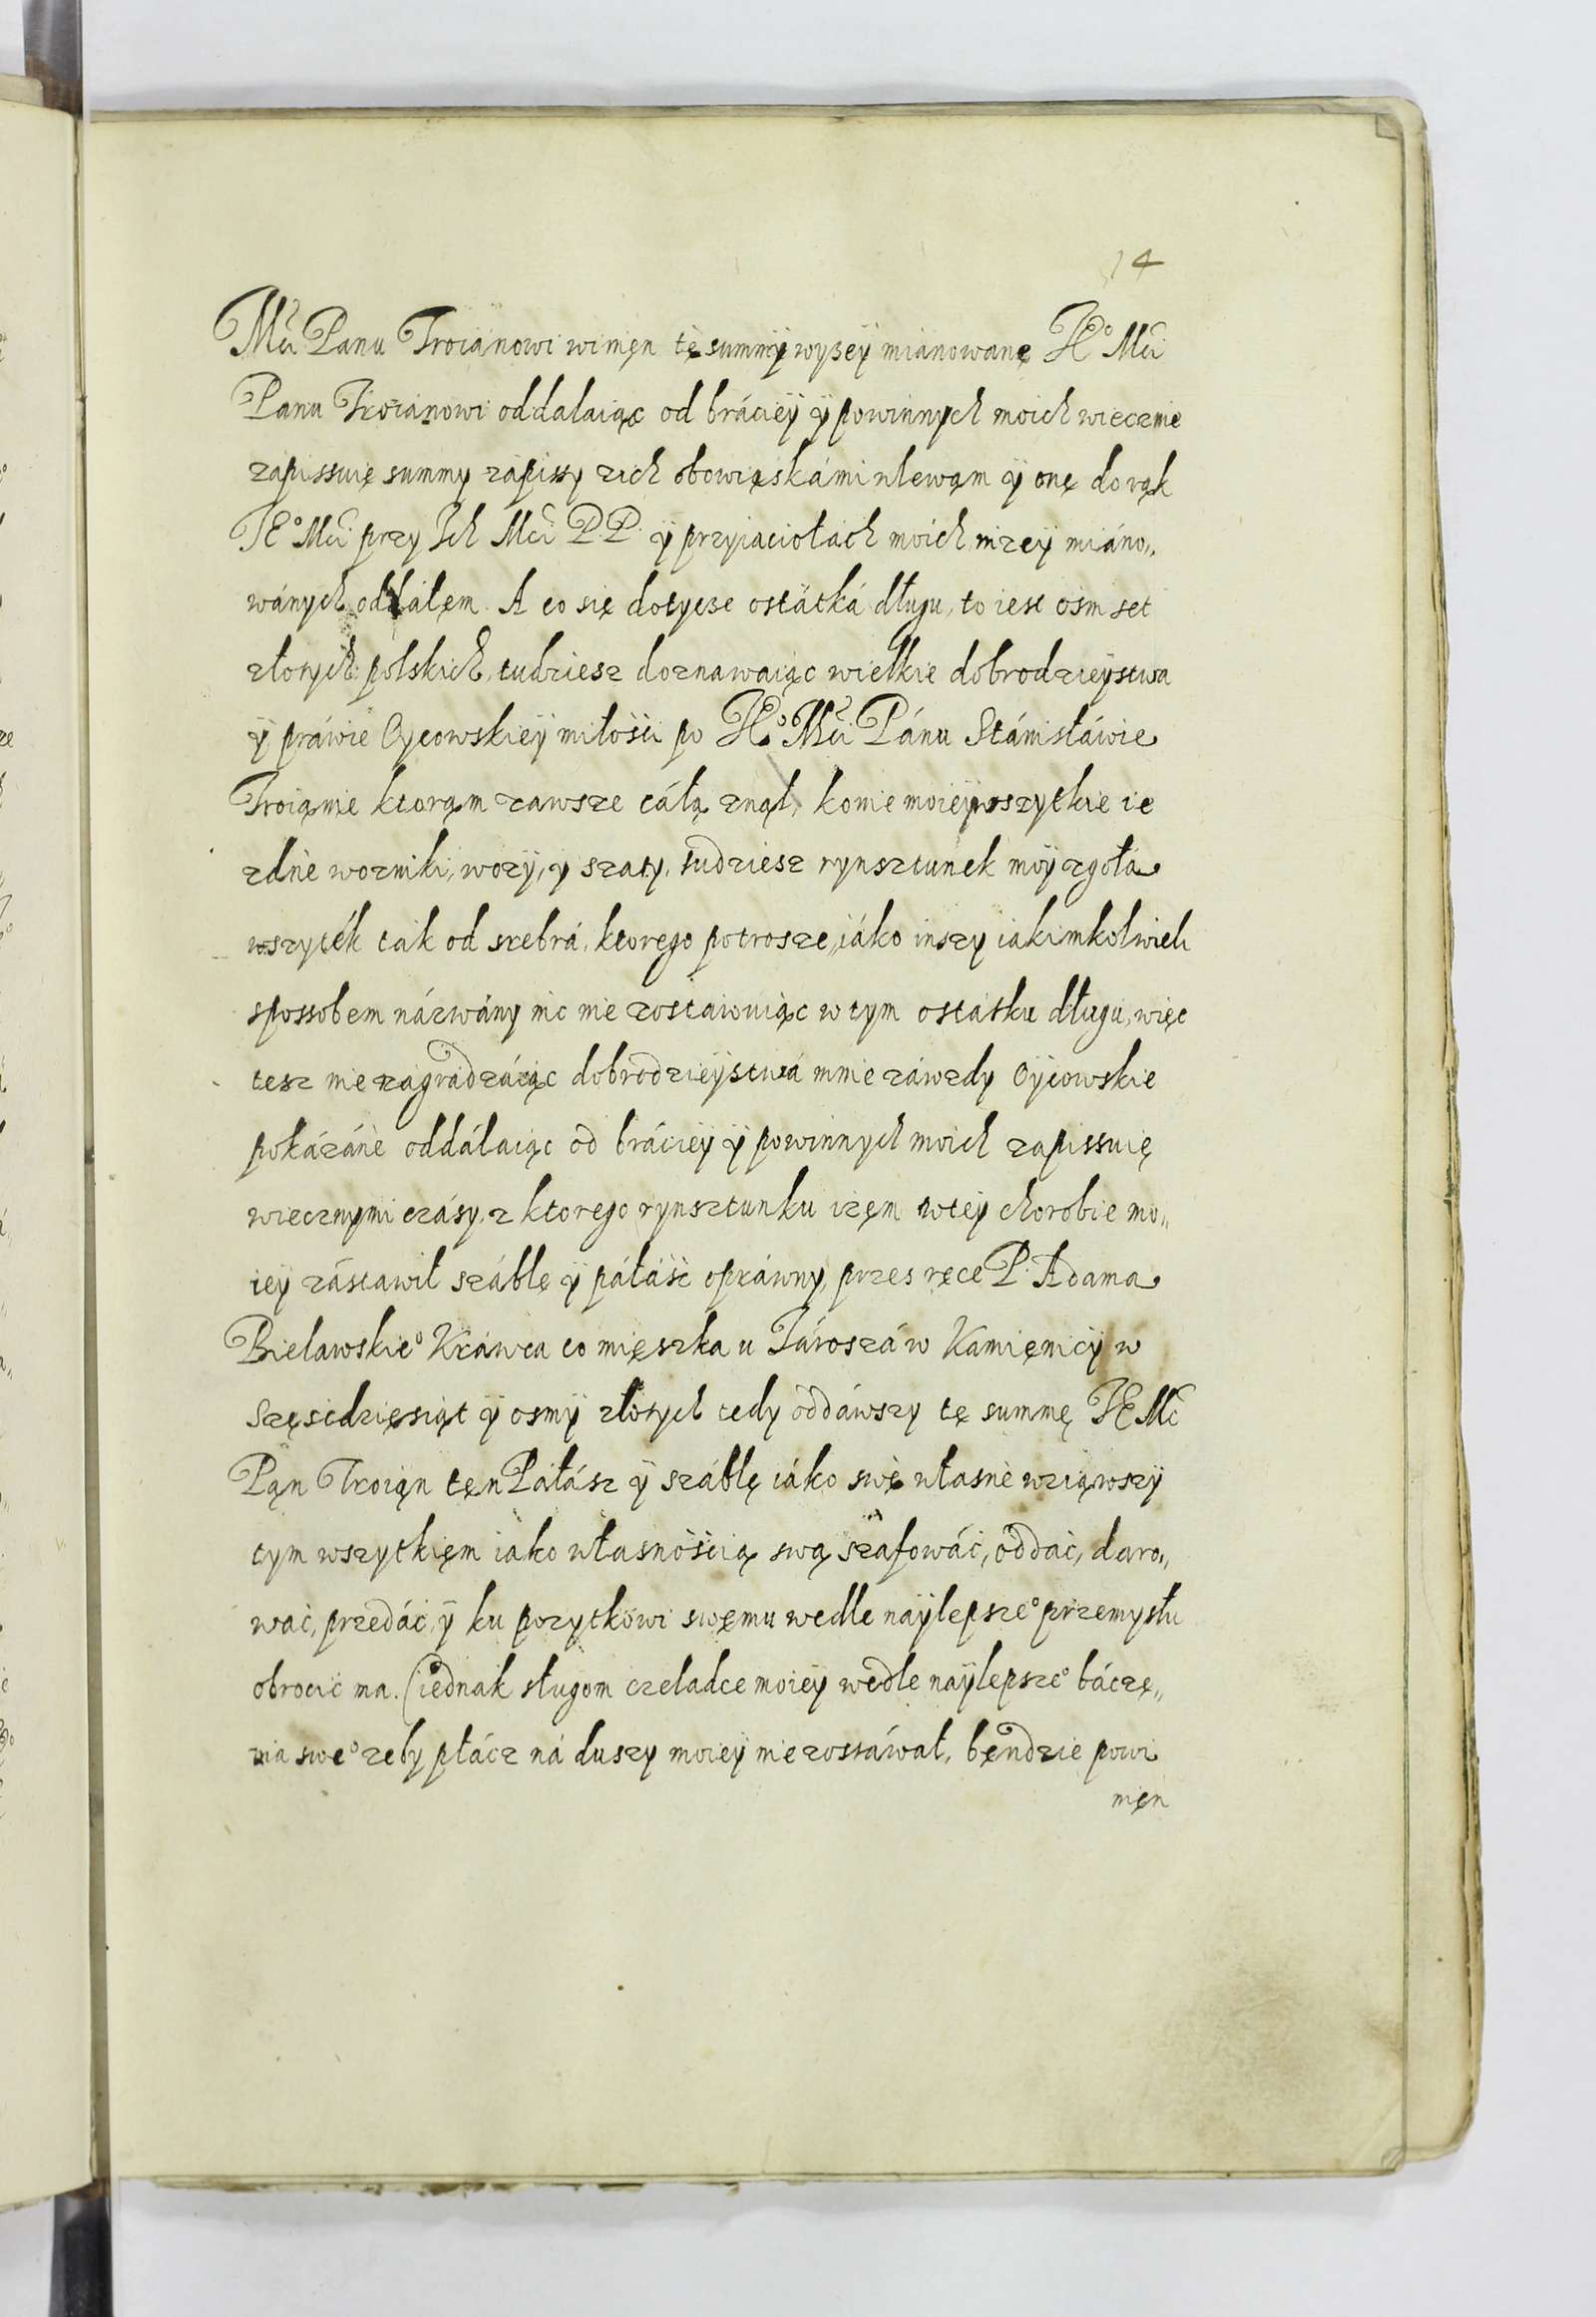 14
Mći Panu Troianowi winięn tę summÿ wyszeÿ mianowanę JE° Mći
Panu Troianowi oddalaiąc od bráciëÿ ÿ powinnych moich wiecznie
zapissuię summy zápissy z ich obowiąskámi wlewąm ÿ onę do rąk
JE° Mći przy Ich Mći P.P. ÿ przyiaciołach moich niżeÿ miáno„
wánych oddałęm. A co się dotycze ostátká długu, to iest osm set
złotych polskich, tudziesz doznawaiąc wielkie dobrodzieÿstwa
ÿ práwie Oycowskieÿ miłośći po JE° Mći Pánu Stánisłáwie
Troiąnie ktorąm zawsze cáłą znał, konie moie wszytkie ie
zdne wozniki, wozÿ, ÿ szaty, tudziesz rynsztunek móÿ zgoła
wszyték tak od srebrá, ktorego potrosze, iáko inszy iakimkolwiek
spossobem názwány nic nie zostawuiąc w tym ostatku długu, więc
tesz nie zagradzáiąc dobrodzieÿstwá mnie záwzdy Oÿcowskie
pokázánè oddálaiąc od bráciëÿ ÿ powinnych moich zapissuię
wiecznymi czásy, z ktorego rynsztunku iżęm w téÿ chorobie mo„
iéÿ zástawił száblę ÿ páłász opráwny, przes ręce P. Adama
Bielawskie° Kráwca co mięszka u Jároszá w Kamięnicÿ w
szęśćdzięsiąt ÿ osmÿ złotych tedy oddáwszy tę summę JE Mć
Pąn Troiąn tęn Páłász ÿ száblę iáko swè własnè wziąwszÿ
tym wszytkięm iako własnośćią swą szafowáć, oddać, daro„
wać, przedáć, ÿ ku pozytkowi swęmu wedle naÿlepsze° przemysłu
obroćić ma. (iednak sługom czeladce moieÿ wedle naÿlepsze° báczę„
nia swe° zeby płácz ná duszy moieÿ nie zostáwał, bęndzie powi
nięn